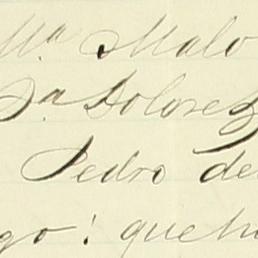 Mª Malo
Dª Dolorez
Pedro de
go! que h